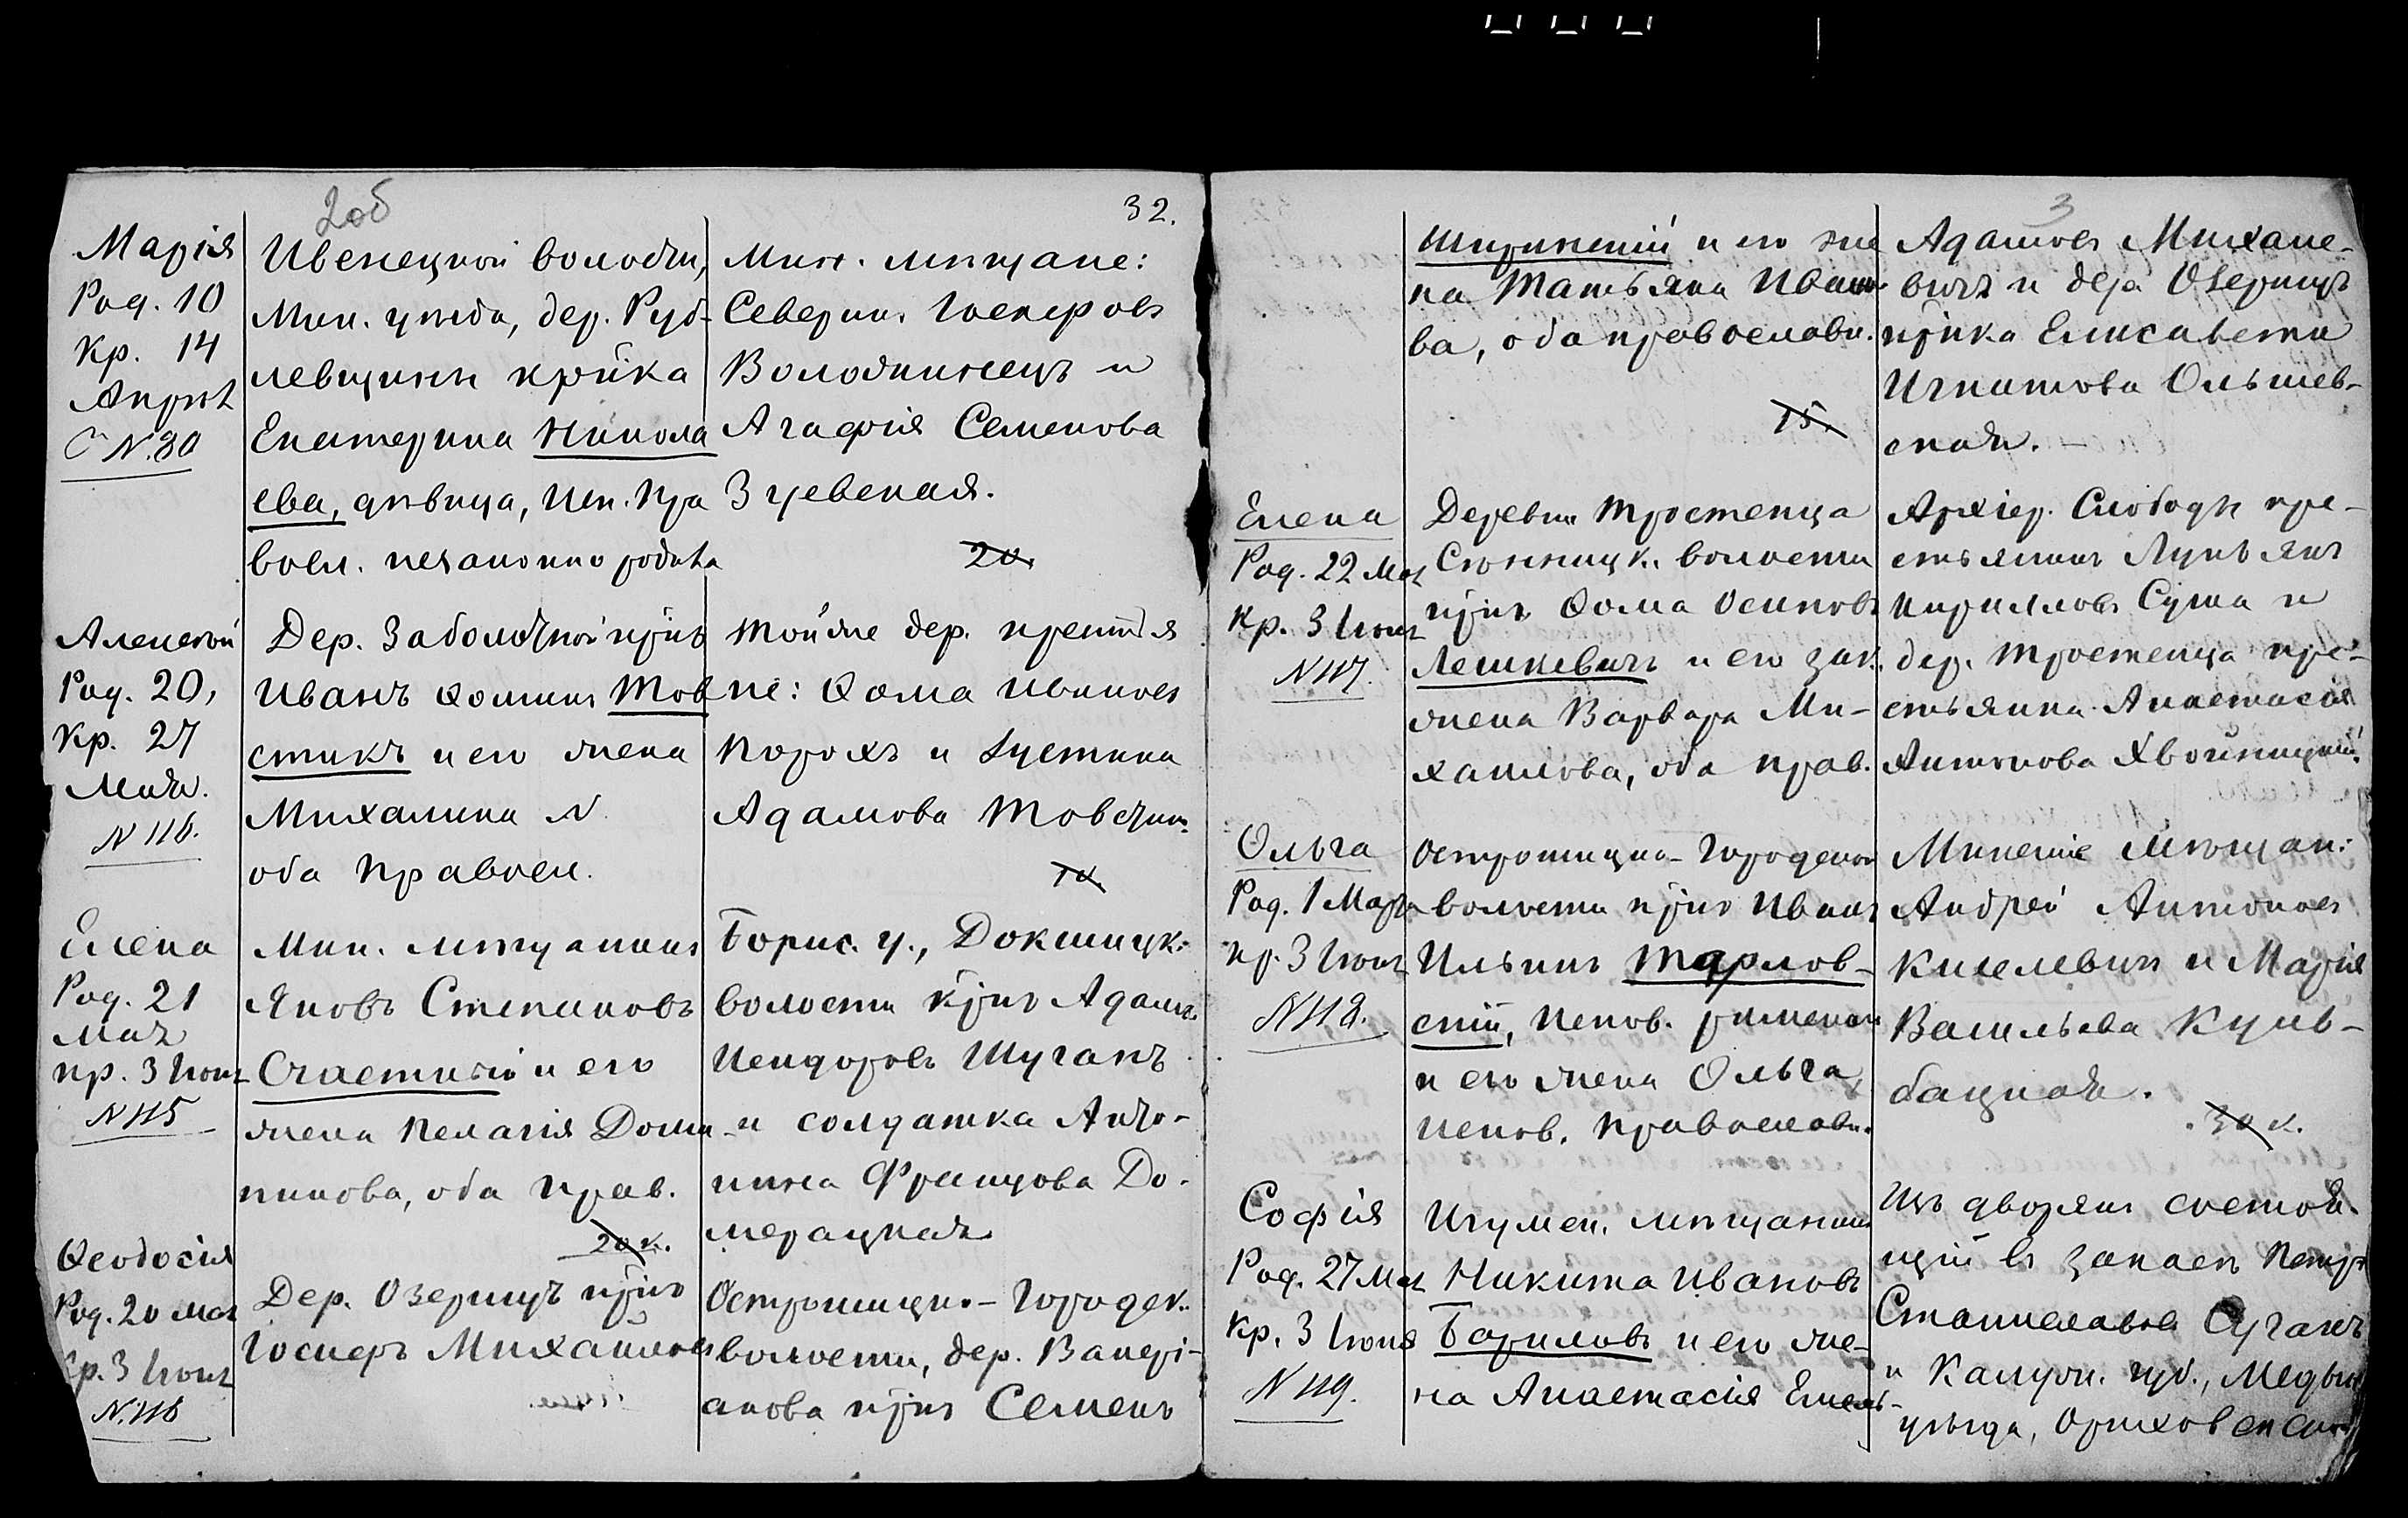 2об
32.
Марія
Род. 10
Кр. 14
Апрѣл
С N.30
Ивенецкой волости,
Мин. уѣзда, дер. Руб-
левщины кр̃нка
Екатерина Никола
ева, дѣвица, исп. пра
восл. незаконно родила
Мин. мѣщане:
Северин. Госперовъ
Володкинецъ и
Агафія Семенова
Згуевская.
20.
Алексѣй
Род. 20,
Кр. 27
Мая.
N 116.
Дер. Заболотной кр̃нъ
Иванъ Ѳоминъ Тов
стикъ и его жена
Михалина N
оба правосл.
Той же дер. крестья
не: Ѳома Ивановъ
Порохъ и Іустина
Адамова Товстик.
10.
Елена
Род. 21
Мая
кр. 3 Іюня
N 115
Мин. мѣщанинъ
Яковъ Степановъ
Счастный и его
жена Пелагія Доми
никова, оба прав.
20 к.
Борис. у., Докшицк.
волости кр̃нъ Адамъ
Исидоровъ Шуганъ
и солдатка Анто-
нина Францова До-
мерацкая
Ѳеодосія
Род. 20 мая
Кр. 3 Іюня
N.116
Дер. Озерицъ кр̃нъ
Іосифъ Михайловъ
Острошицко-Городек.
волости, дер. Валері-
анова кр̃нъ Семенъ
3
и его же
на Татьяна Ивано
ва, оба православн.
15.
Адамовъ Михале-
вичъ и дер Озерицъ
кр̃нка Елисавета
Игнатова Ольшев-
ская. —
Елена
Род. 22 Мая
Кр. 3 Іюня
N 117.
Деревни Тростенца
Сѣнницк. волости
кр̃нъ Ѳома Осиповъ
Лешкевичъ и его зак.
жена Варвара Ми-
хайлова, оба прав.
Архіер. Слободы кре-
стьянинъ Лукьянъ
Кирилловъ Суша и
дер. Тростенца кре-
стьянка Анастасія
Антонова Хвойницкая.
Ольга
Род. 1 Марта
кр. 3 Іюня
N 118.
Острошицко-Городской
волости кр̃нъ Иванъ
Ильинъ Тарлов-
скій, испов. римской
и его жена Ольга,
испов. православн.
Минскіе мѣщан:
Андрей Антоновъ
Киселевичъ и Марія
Васильева Куль-
бацкая.
30 к.
Софія
Род. 27 Мая
Кр. 3 Іюня
N 119.
Игумен. мѣщанинъ
Никита Ивановъ
Бориловъ и его же-
на Анастасія Емель-
Изъ дворянъ состоя-
щій въ запасѣ Петръ
Станиславовъ Суганъ
и Калужс. губ., Медын
уѣзда, Ориховск